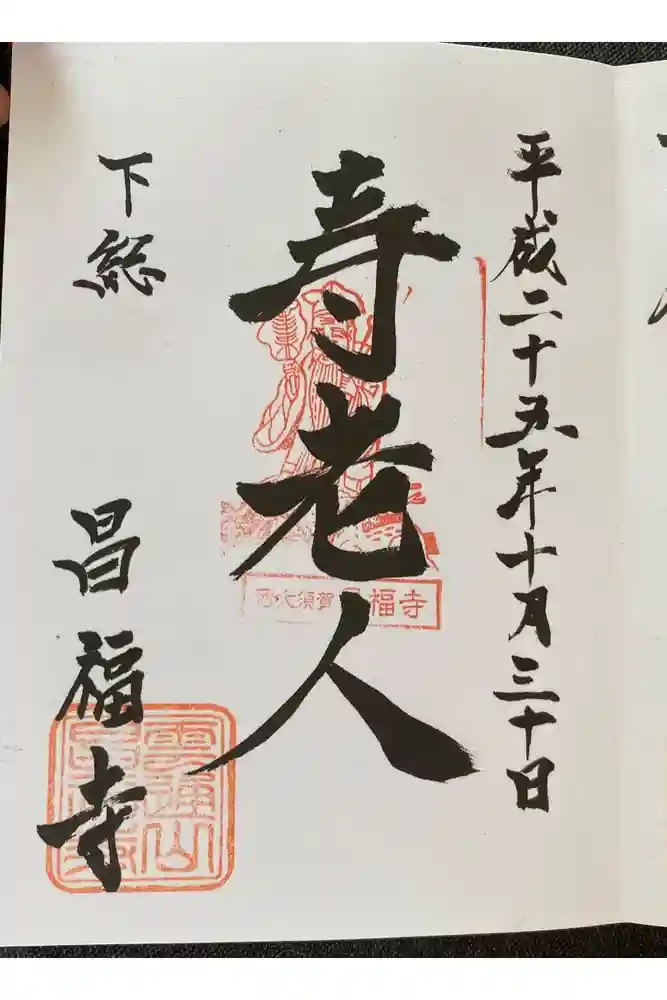 平成二十五年十月三十日
寿老人
西大須賀 昌福寺
下総
昌福寺